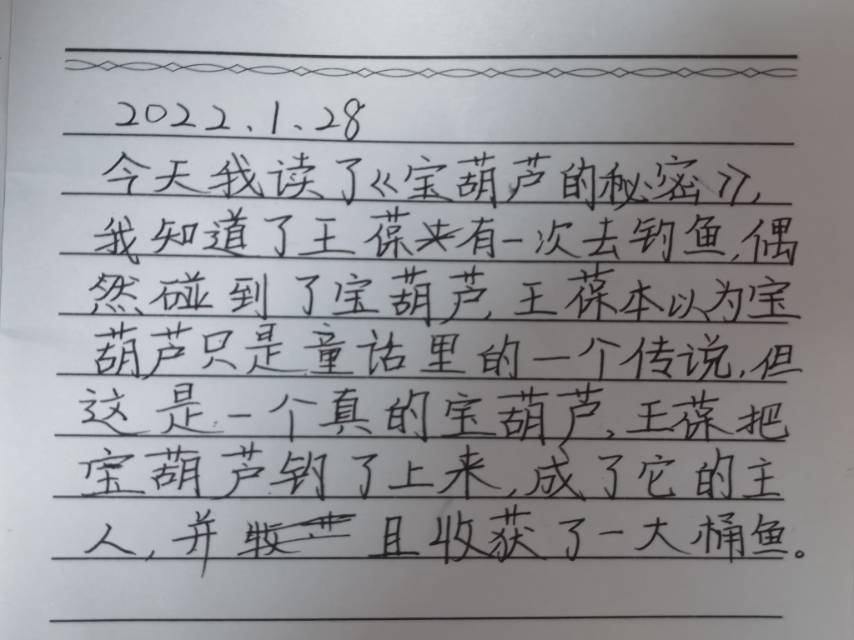 2022.1.28
今天我读了《宝葫芦的秘密》,
我知道了王葆有一次去钓鱼,偶
然碰到了宝葫芦,王葆本以为宝
葫芦只是童话里的一个传说,但
这是一个真的宝葫芦,王葆把
宝葫芦钓了上来,成了它的主
人,并且收获了一大桶鱼。